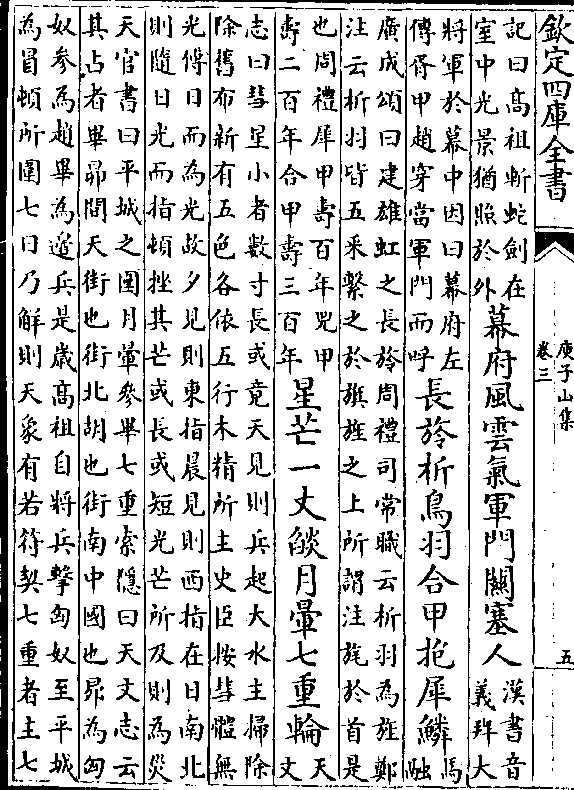 欽定四庫全書
庾子山集
卷三
五
記曰髙祖斬蛇劍在
室中光景猶照於外
幕府風雲氣軍門關塞人
漢書音
義拜大
將軍於幕中因曰幕府左
傳胥甲趙穿當軍門而呼
長旍析鳥羽合甲抱犀鱗
馬
融
廣成頌曰建雄虹之長旍周禮司常職云析羽為旌鄭
注云析羽皆五采繫之於旟旌之上所謂注旄於首是
也周禮犀甲壽百年兕甲
壽二百年合甲壽三百年
星芒一丈燄月暈七重輪
天
文
志曰彗星小者數寸長或竟天見則兵起大水主掃除
除舊布新有五色各依五行木精所主史臣按彗體無
光傅日而為光故夕見則東指晨見則西指在日南北
則隨日光而指頓挫其芒或長或短光芒所及則為災
天官書曰平城之圍月暈參畢七重索隱曰天文志云
其占者畢昴間天街也街北胡也街南中國也昴為匈
奴參為趙畢為邊兵是歲髙祖自將兵擊匈奴至平城
為冒頓所圍七日乃解則天象有若符契七重者主七